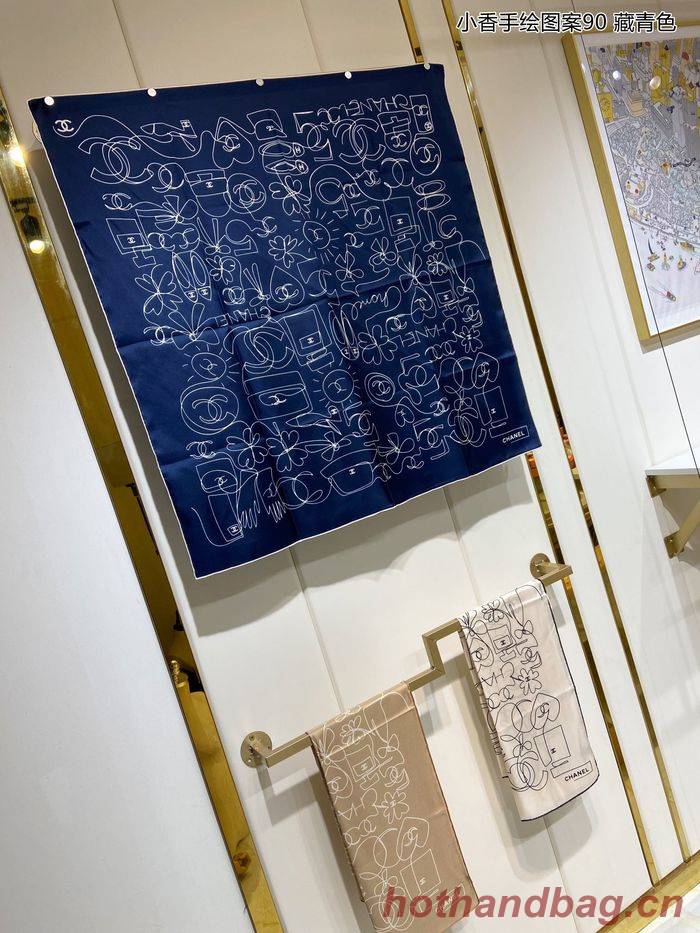 小香手绘图案90 藏青色
CHANEL
Chanel
CHANEL
CHANEL
CHANEL
hothandbag.cn